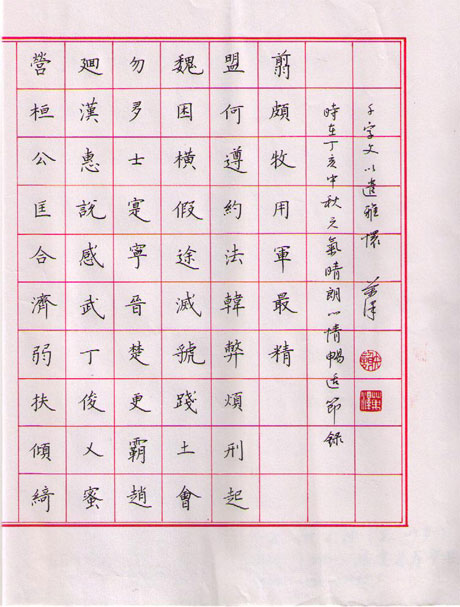 營桓公匡合濟弱扶傾綺
廻漢惠說感武丁俊乂蜜
勿多士寔寧晉楚更霸趙
魏困橫假途滅虢踐土會
盟何遵約法韓弊煩刑起
翦頗牧用軍最精
時在丁亥中秋天氣晴朗心情暢适節錄
千字文以遣雅懷